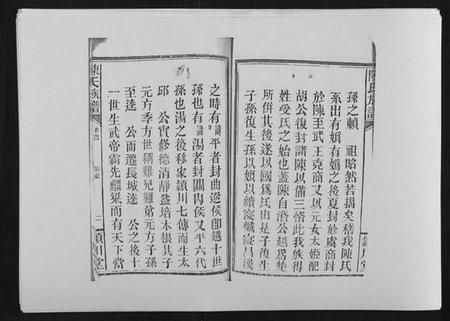 孫之賴　祖晗然若揭矣稽我陳氏
系出有媯有媯之後夏封於虞商封
於陳至武　王克商又以元女太姬配
胡公復封諸陳以備三恪此我族得
姓受氏之始也蓋陳自滑公越為楚
所併其後遂以國為氏由是子復生
子孫復生孫以媯以續寔熾寔昌漢
之時有諱平者封曲逆侯　公即越十世
孫也有諱湯者封關內侯又平六代
孫也湯之後移家潁川七傳而生太
邱　公實修德清靜益培本根其子
元方季方世稱難兄難弟元方子孫
至逵　公而遷長城逵　公之後十
一世生武帝霸先繼梁而有天下當
陳氏族譜
卷首
二
潁川堂